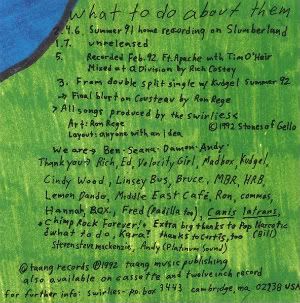 what to do about them
2.4.6. Summer 91 home recording on Slumberland
1.7. unreleased
5. Recorded Feb. 92 Ft. Apache with Tim O'Heir
Mixed at Q Division by Rich Costey
3. From double split single w/ Kudgel Summer 92
→ Final blurt on Cousteau by Ron Rege
> All songs produced by the swirlies <
Art: Ron Rege ©1992 Stones of Gello
Layout: anyone with an idea
We are → Ben · Seana · Damon · Andy ·
Thank you → Rich, Ed, Velocity Girl, Madbox, Kudgel,
Cindy Wood, Linsey Bus, Bruce, MBR, HRB,
Lemon Dando, Middle East Café, Ron, commas,
Hannah BOX, Fred (Padilla too), Canis Latrans,
Chimp Rock Forever, Extra big thanks to Pop Narcotic (Bill)
what to do, Kara! thanks to Curtis, too
Steven steve mackenzie, Andy (Platinum Sound)
© taang records ©1992 taang music publishing
also available on cassette and twelve inch record
for further info: swirlies- p.o. box 3443 cambridge, ma 02938 USA